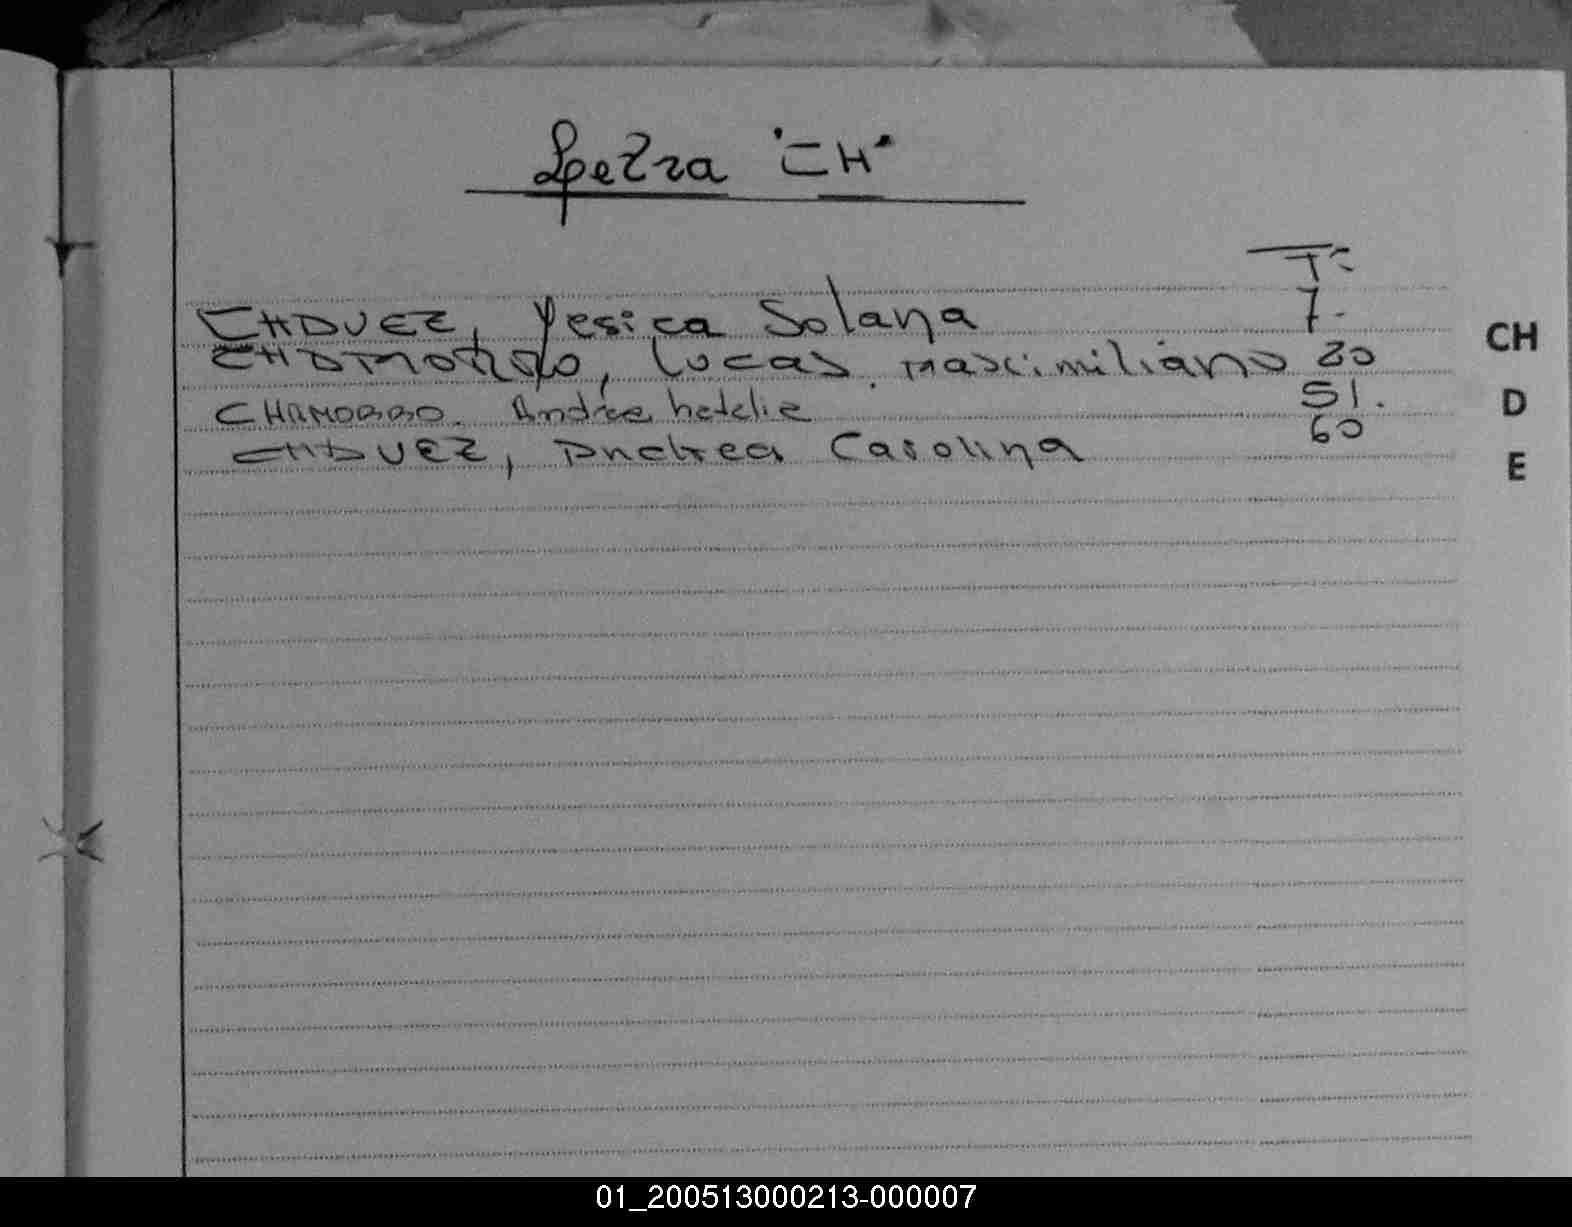 Letra "CH"
Tº
CHAVEZ, Yesica Solana 7.
CHAMORRO, Lucas Maximiliano 20
CHAMORRO. Andrea Natalia 51.
CHAVEZ, Andrea Carolina 60
CH
D
E
01_200513000213-000007